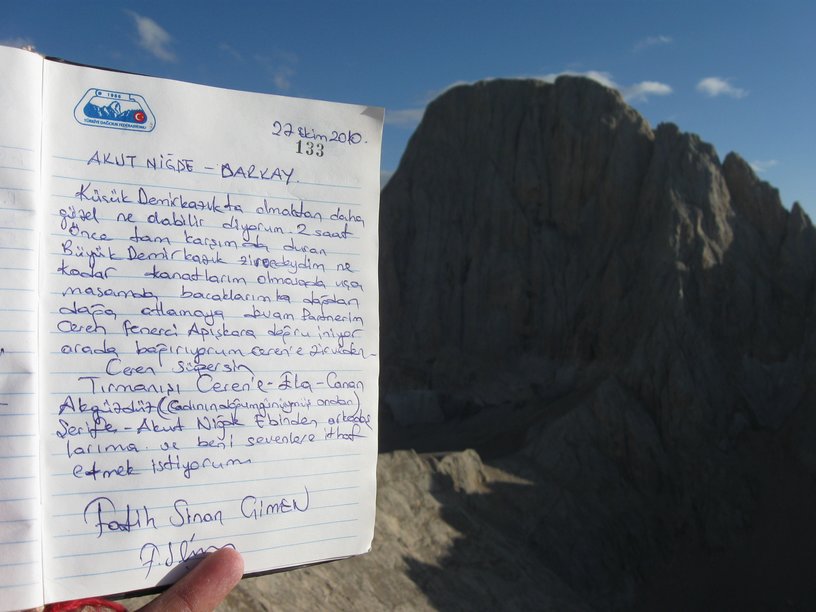 1966
TÜRKİYE DAĞCILIK FEDERASYONU
27 Ekim 2010.
133
AKUT NİĞDE - DARKAY
Küçük Demirkazıkta olmaktan daha
güzel ne olabilir diyorum. 2 saat
önce tam karşımda duran
Büyük Demirkazık zirvedeydim ne
kadar kanatlarım olmasada uça
masamda bacaklarımla dağdan
dağa atlamaya devam Partnerim
Ceren Fenerci Apışkara doğru iniyor
arada bağırıyorum ceren'e zirveden -
Ceren süpersin
Tırmanışı Ceren'e - Ela - Canan
Akgündüz (Kadının doğum günüymüş ondan)
Şerife - Akut Niğde Ekibinden arkadaş
larıma ve beni sevenlere ithaf
etmek istiyorum
Fatih Sinan ÇİMEN